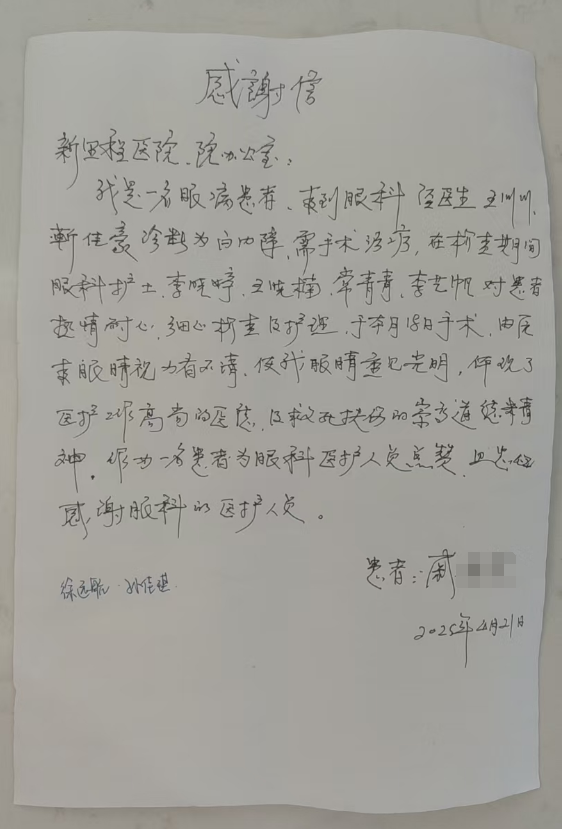 感謝信
新里程医院、院办公室：
我是一名眼病患者、来到眼科 经医生王川川、
靳佳豪诊断为白内障，需手术治疗，在检查期间
眼科护士，李晓婷，王晓楠，常青青，李艺帆对患者
热情耐心，细心检查及护理，于本月18日手术，由原
来眼睛视力看不清，使我眼睛重见光明，体现了
医护工作高尚的医德，及救死扶伤的崇高道德
神。作为一名患者为眼科医护人员点赞，
感谢眼科的医护人员。
患者：戚
徐远航、孙佳琪
2025年4月21日